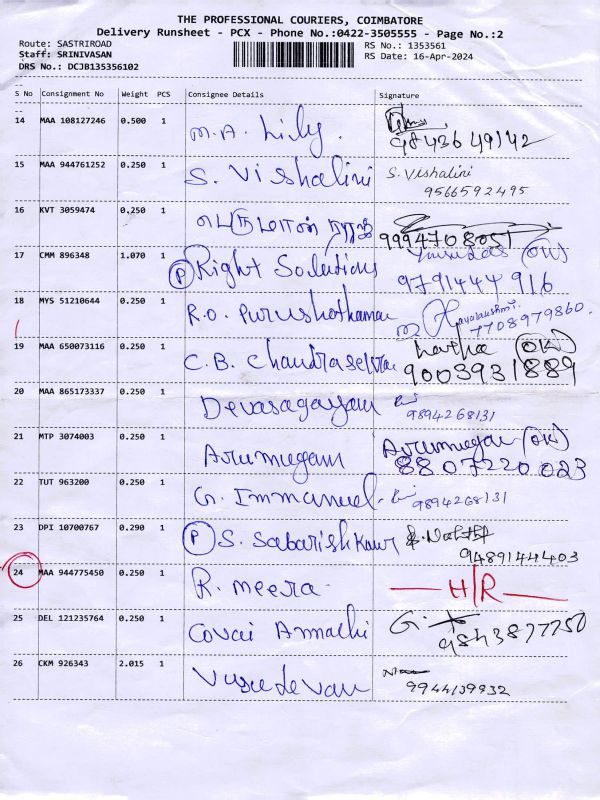 THE PROFESSIONAL COURIERS, COIMBATORE
Delivery Runsheet - PCX - Phone No.:0422-3505555 - Page No.:2
Route: SASTRIROAD
RS No.: 1353561
Staff: SRINIVASAN
RS Date: 16-Apr-2024
DRS No.: DCJB135356102
S No Consignment No Weight PCS Consignee Details Signature
14 MAA 108127246 0.500 1 M.A. Lily.
98436 49142
15 MAA 944761252 0.250 1 S. Vishalini S. Vishalini
9566592495
16 KVT 3059474 0.250 1
9994708051
17 CMM 896348 1.070 1 P Right Solutions (OW)
9791444 916
18 MYS 51210644 0.250 1 R.O. Purushothaman
7708979860.
19 MAA 650073116 0.250 1 C.B. Chandraselvan Latha (OW)
9003931889
20 MAA 865173337 0.250 1 Devasagayam
9894268131
21 MTP 3074003 0.250 1 Arumugam Arumugam (OW)
8807220023
22 TUT 963200 0.250 1 G. Immanuel
9894268131
23 DPI 10700767 0.290 1 P S. Sabarishkaur
9489144403
24 MAA 944775450 0.250 1 R. Meera H/R
25 DEL 121235764 0.250 1 Covai Annachi G.
9843877250
26 CKM 926343 2.015 1 Vasudevan
9944139932